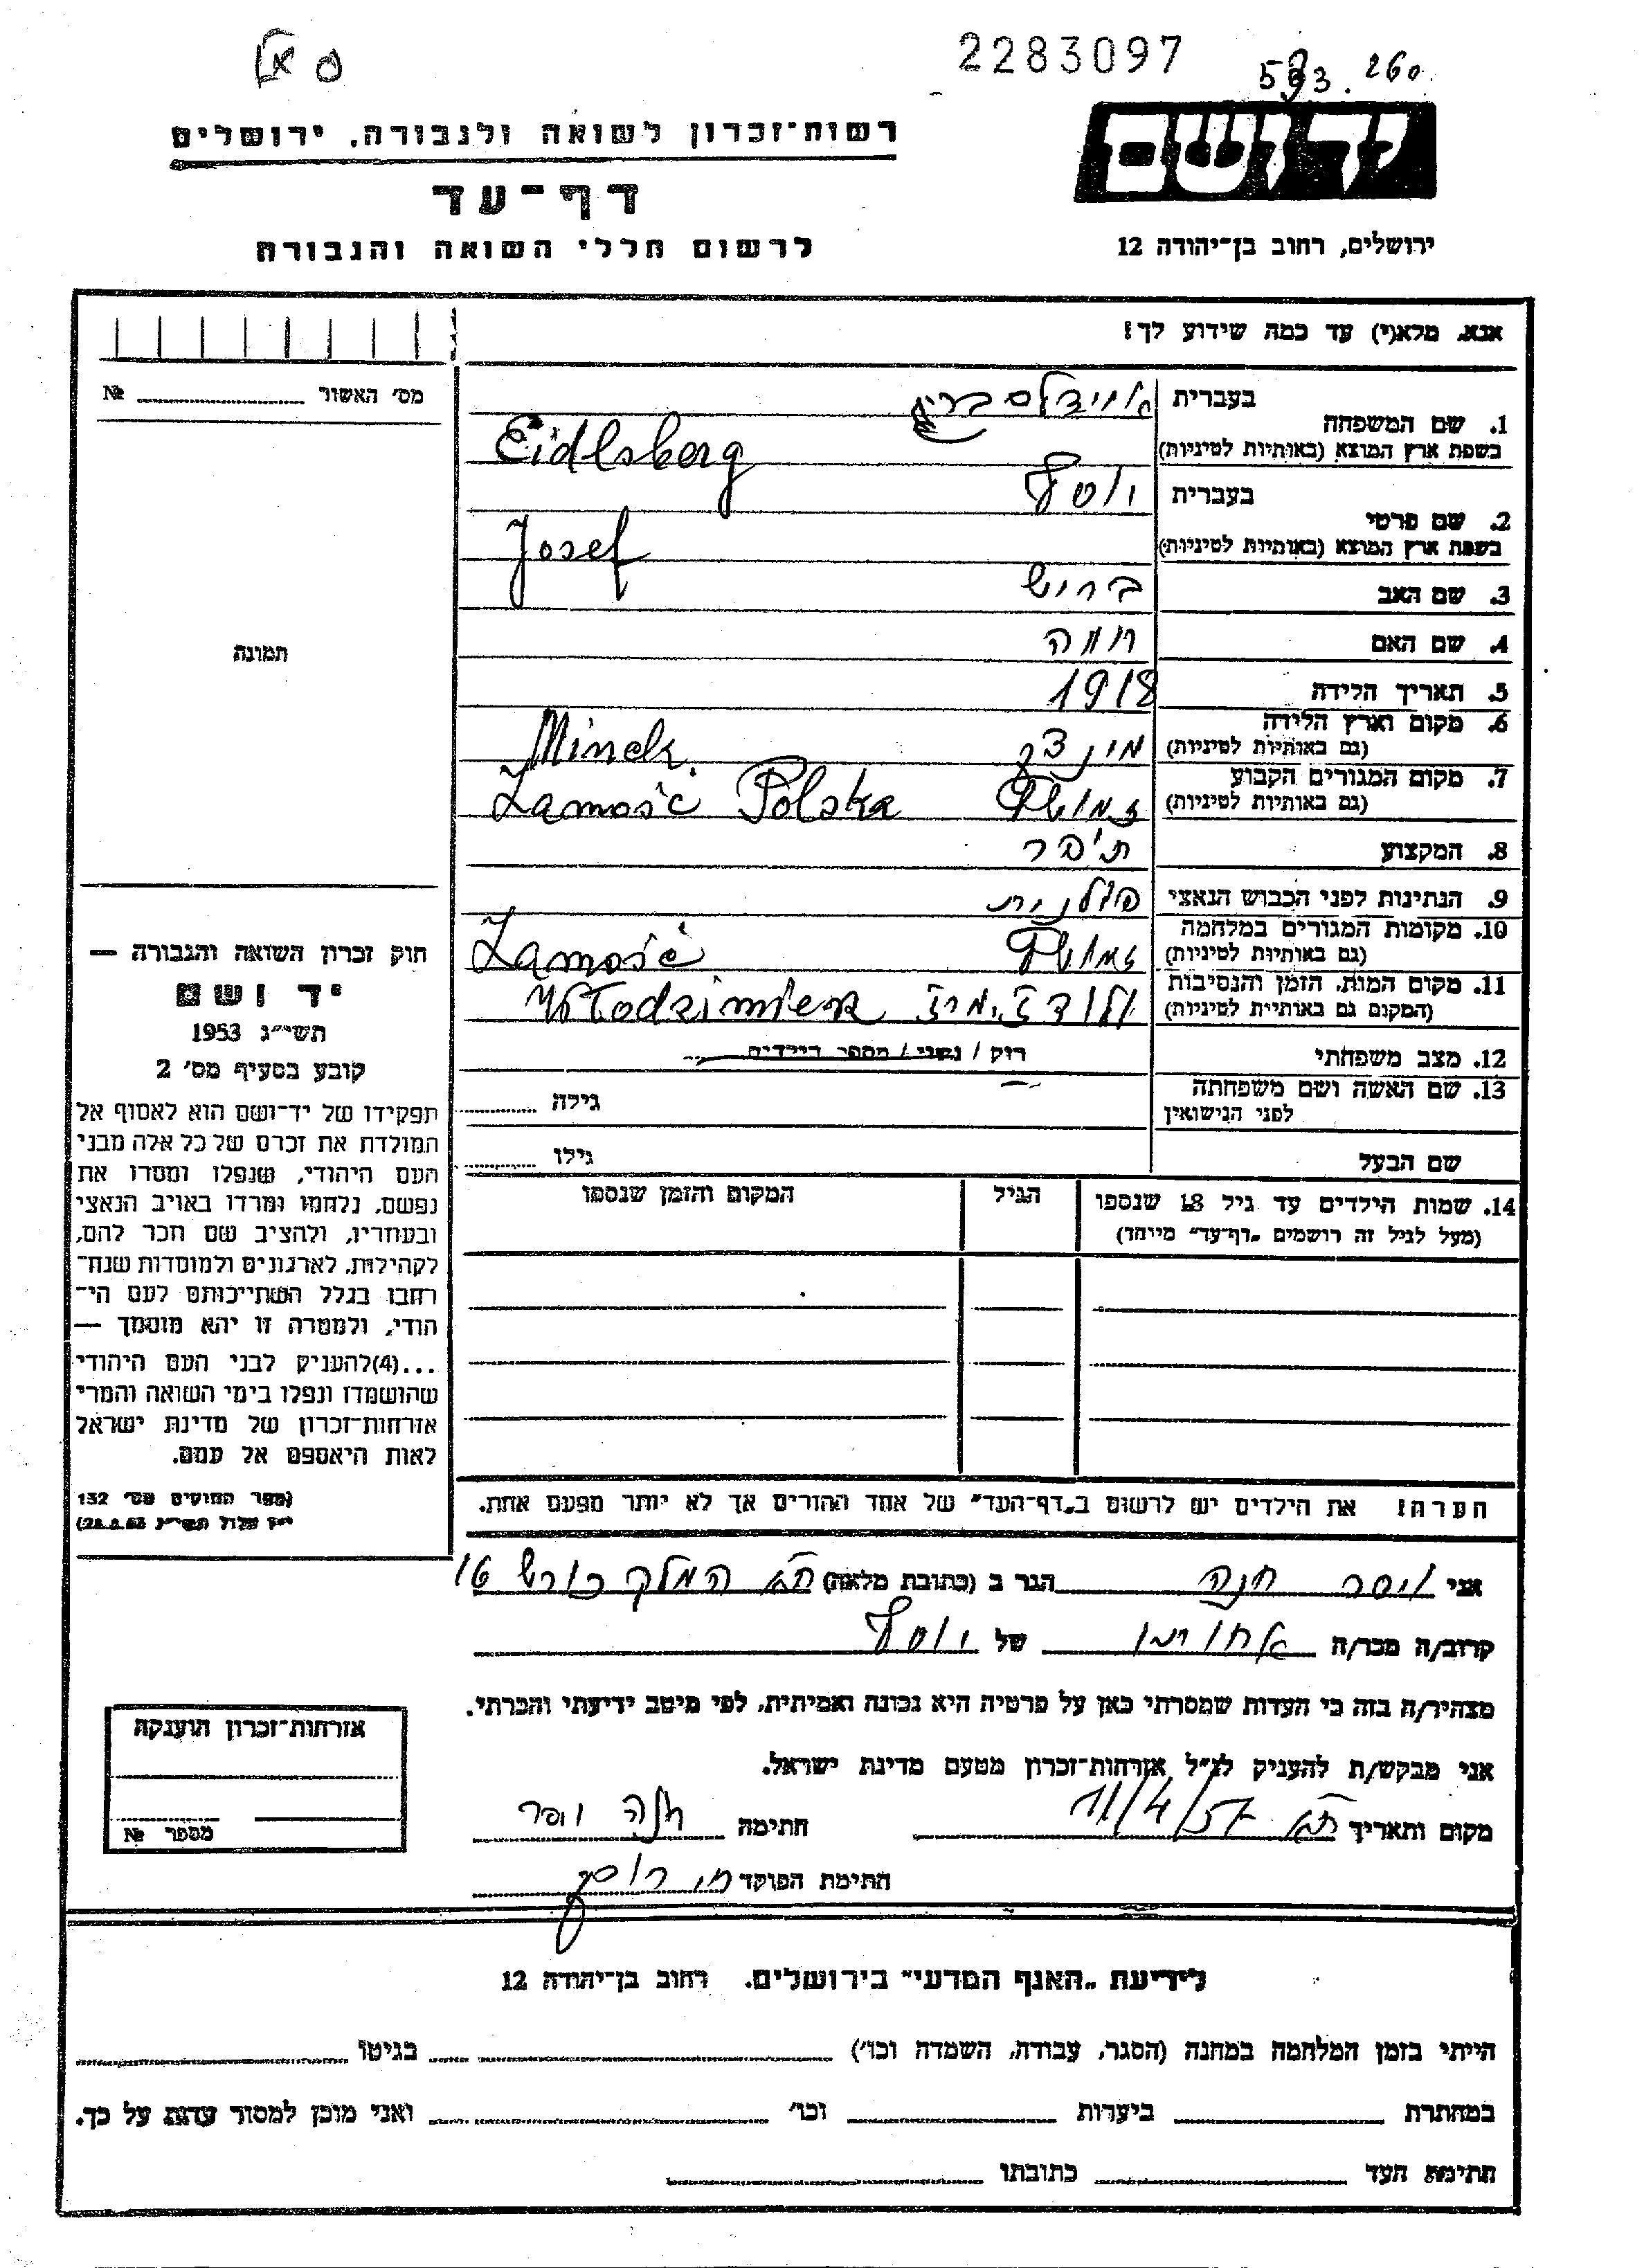 2283097
593. 260
רשות-זכרון לשואה ולגבורה, ירושלים
יד ושם
דף-עד
לרשום חללי השואה והגבורה
ירושלים, רחוב בן-יהודה 12
אנא, מלא(י) עד כמה שידוע לך!
מס' האשור № 
תמונה
1. שם המשפחה
בעברית אוידלסברג
בשפת ארץ המוצא (באותיות לטיניות) Eidlsberg
2. שם פרטי
בעברית יוסף
בשפת ארץ המוצא (באותיות לטיניות) Josef
3. שם האב בריש
4. שם האם חוה
5. תאריך הלידה 1918
6. מקום וארץ הלידה
(גם באותיות לטיניות) Minck
7. מקום המגורים הקבוע
(גם באותיות לטיניות) Zamość Polska
8. המקצוע תיפר
9. הנתינות לפני הכבוש הנאצי פולנית
10. מקומות המגורים במלחמה
(גם באותיות לטיניות) Zamość
11. מקום המות, הזמן והנסיבות
(המקום גם באותיית לטיניות) Włodzimierz
12. מצב משפחתי רוק / נשוי / מספר הילדים
13. שם האשה ושם משפחתה
לפני הנישואין
גילה
שם הבעל
גילו
14. שמות הילדים עד גיל 18 שנספו
(מעל לגיל זה רושמים "דף-עד" מיוחד)
הגיל
המקום והזמן שנספו
הערה! את הילדים יש לרשום ב"דף-העד" של אחד ההורים אך לא יותר מפעם אחת.
חוק זכרון השואה והגבורה —
יד ושם
תשי"ג 1953
קובע בסעיף מס' 2
תפקידו של יד-ושם הוא לאסוף אל
המולדת את זכרם של כל אלה מבני
העם היהודי, שנפלו ומסרו את
נפשם, נלחמו ומרדו באויב הנאצי
ובעוזריו, ולהציב שם וזכר להם,
לקהילות, לארגונים ולמוסדות שנח-
רבו בגלל השתייכותם לעם הי-
הודי, ולמטרה זו יהא מוסמך —
...(4)להעניק לבני העם היהודי
שהושמדו ונפלו בימי השואה והמרי
אזרחות-זכרון של מדינת ישראל
לאות היאספם אל עמם.
(ספר החוקים מס' 132
י"ז אלול תשי"ג 28.8.53)
אני חנה הגר ב (כתובת מלאה) ת"א המלך כורש 16
קרוב/ה מכר/ה אחותו של יוסף
מצהיר/ה בזה כי העדות שמסרתי כאן על פרטיה היא נכונה ואמיתית, לפי מיטב ידיעתי והכרתי.
אני מבקש/ת להעניק לנ"ל אזרחות-זכרון מטעם מדינת ישראל.
מקום ותאריך ת"א 11/4/57 חתימה חנה
חתימת הפוקד
אזרחות-זכרון הוענקה
מספר №
לידיעת "האגף המדעי" בירושלים. רחוב בן-יהודה 12
הייתי בזמן המלחמה במחנה (הסגר, עבודה, השמדה וכו') בגיטו
במחתרת ביערות וכו' ואני מוכן למסור עדות על כך.
חתימת העד כתובתו